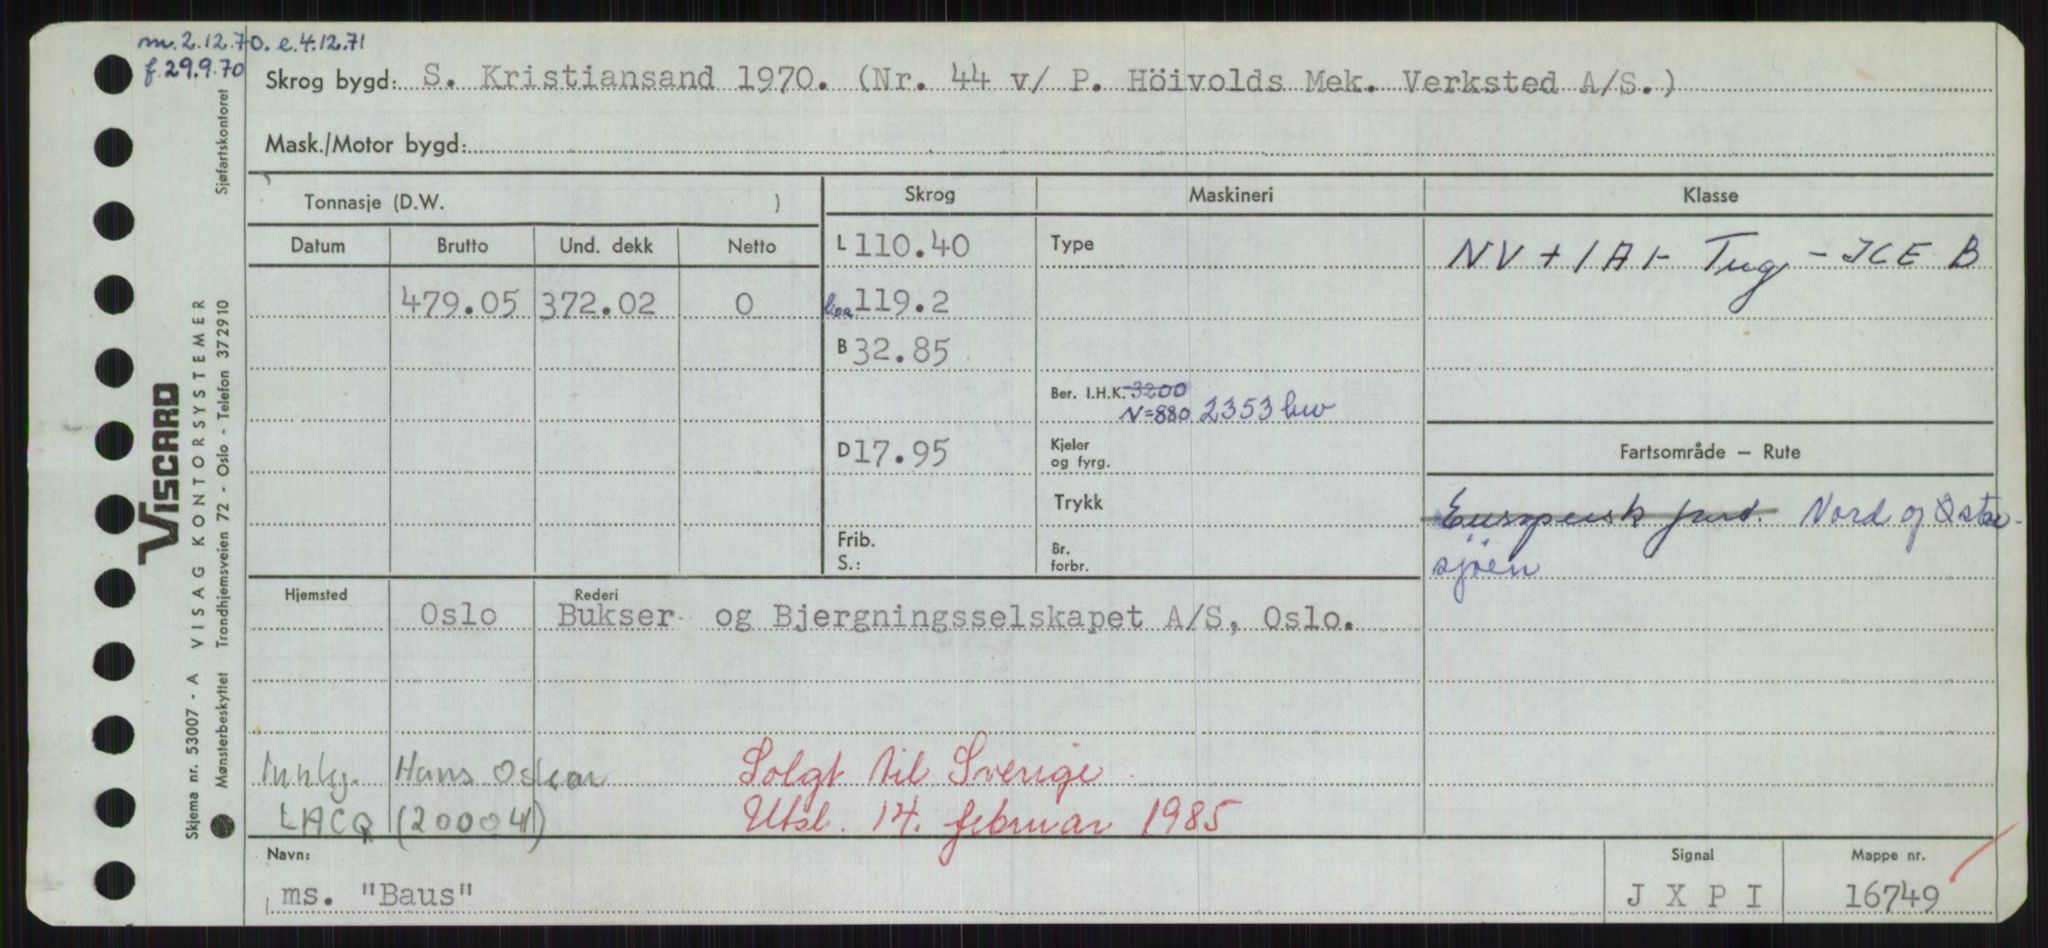 m. 2.12.70. e. 4.12.71
f. 29.9.70
Skrog bygd: S. Kristiansand 1970. (Nr. 44 v/ P. Höivolds Mek. Verksted A/S.)
Mask./Motor bygd:
Tonnasje (D.W. )
Skrog
Maskineri
Klasse
Datum Brutto Und. dekk Netto
L 110.40
Type
NV + 1A1 - Tug - ICE B
479.05 372.02 0
Loa 119.2
B 32.85
Ber. I.H.K. 3200
N=880 2353 kw
D 17.95
Kjeler
og fyrg.
Fartsområde — Rute
Trykk
Europeisk fart. Nord og Øster-
sjøen
Frib.
S.:
Br.
forbr.
Hjemsted
Rederi
Oslo Bukser og Bjergningsselskapet A/S, Oslo.
Hans Oskar Solgt til Sverige
LACQ (200041) Utsl. 14. februar 1985
Navn:
Signal
Mappe nr.
ms. "Baus"
J X P I
16749
VISCARD
Skjema nr. 53007 - A VISAG KONTORSYSTEMER
Mønsterbeskyttet Trondhjemsveien 72 - Oslo - Telefon 372910 Sjøfartskontoret